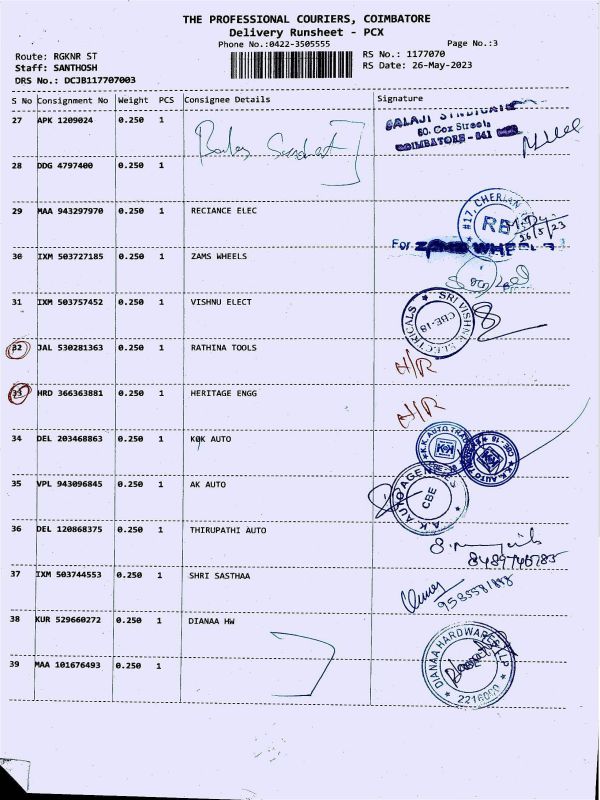 THE PROFESSIONAL COURIERS, COIMBATORE
Delivery Runsheet - PCX
Phone No.:0422-3505555 Page No.:3
Route: RGKNR ST RS No.: 1177070
Staff: SANTHOSH RS Date: 26-May-2023
DRS No.: DCJB117707003
S No Consignment No Weight PCS Consignee Details Signature
27 APK 1209024 0.250 1
BALAJI SYNDICATE
80. Cox Street,
COIMBATORE - 641
28 DDG 4797400 0.250 1
29 MAA 943297970 0.250 1 RECIANCE ELEC
#17, CHERIAN
RB
26/5/23
For ZAMS WHEELS
30 IXM 503727185 0.250 1 ZAMS WHEELS
31 IXM 503757452 0.250 1 VISHNU ELECT
SRI VISHNU ELECTRICALS
CBE-18
32 JAL 530281363 0.250 1 RATHINA TOOLS
N/R
33 HRD 366363881 0.250 1 HERITAGE ENGG
N/R
34 DEL 203468863 0.250 1 KOK AUTO
35 VPL 943096845 0.250 1 AK AUTO
A.K. AUTO AGENCIES
CBE
36 DEL 120868375 0.250 1 THIRUPATHI AUTO
37 IXM 503744553 0.250 1 SHRI SASTHAA
38 KUR 529660272 0.250 1 DIANAA HW
39 MAA 101676493 0.250 1
DIANAA HARDWARES LLP
2216000